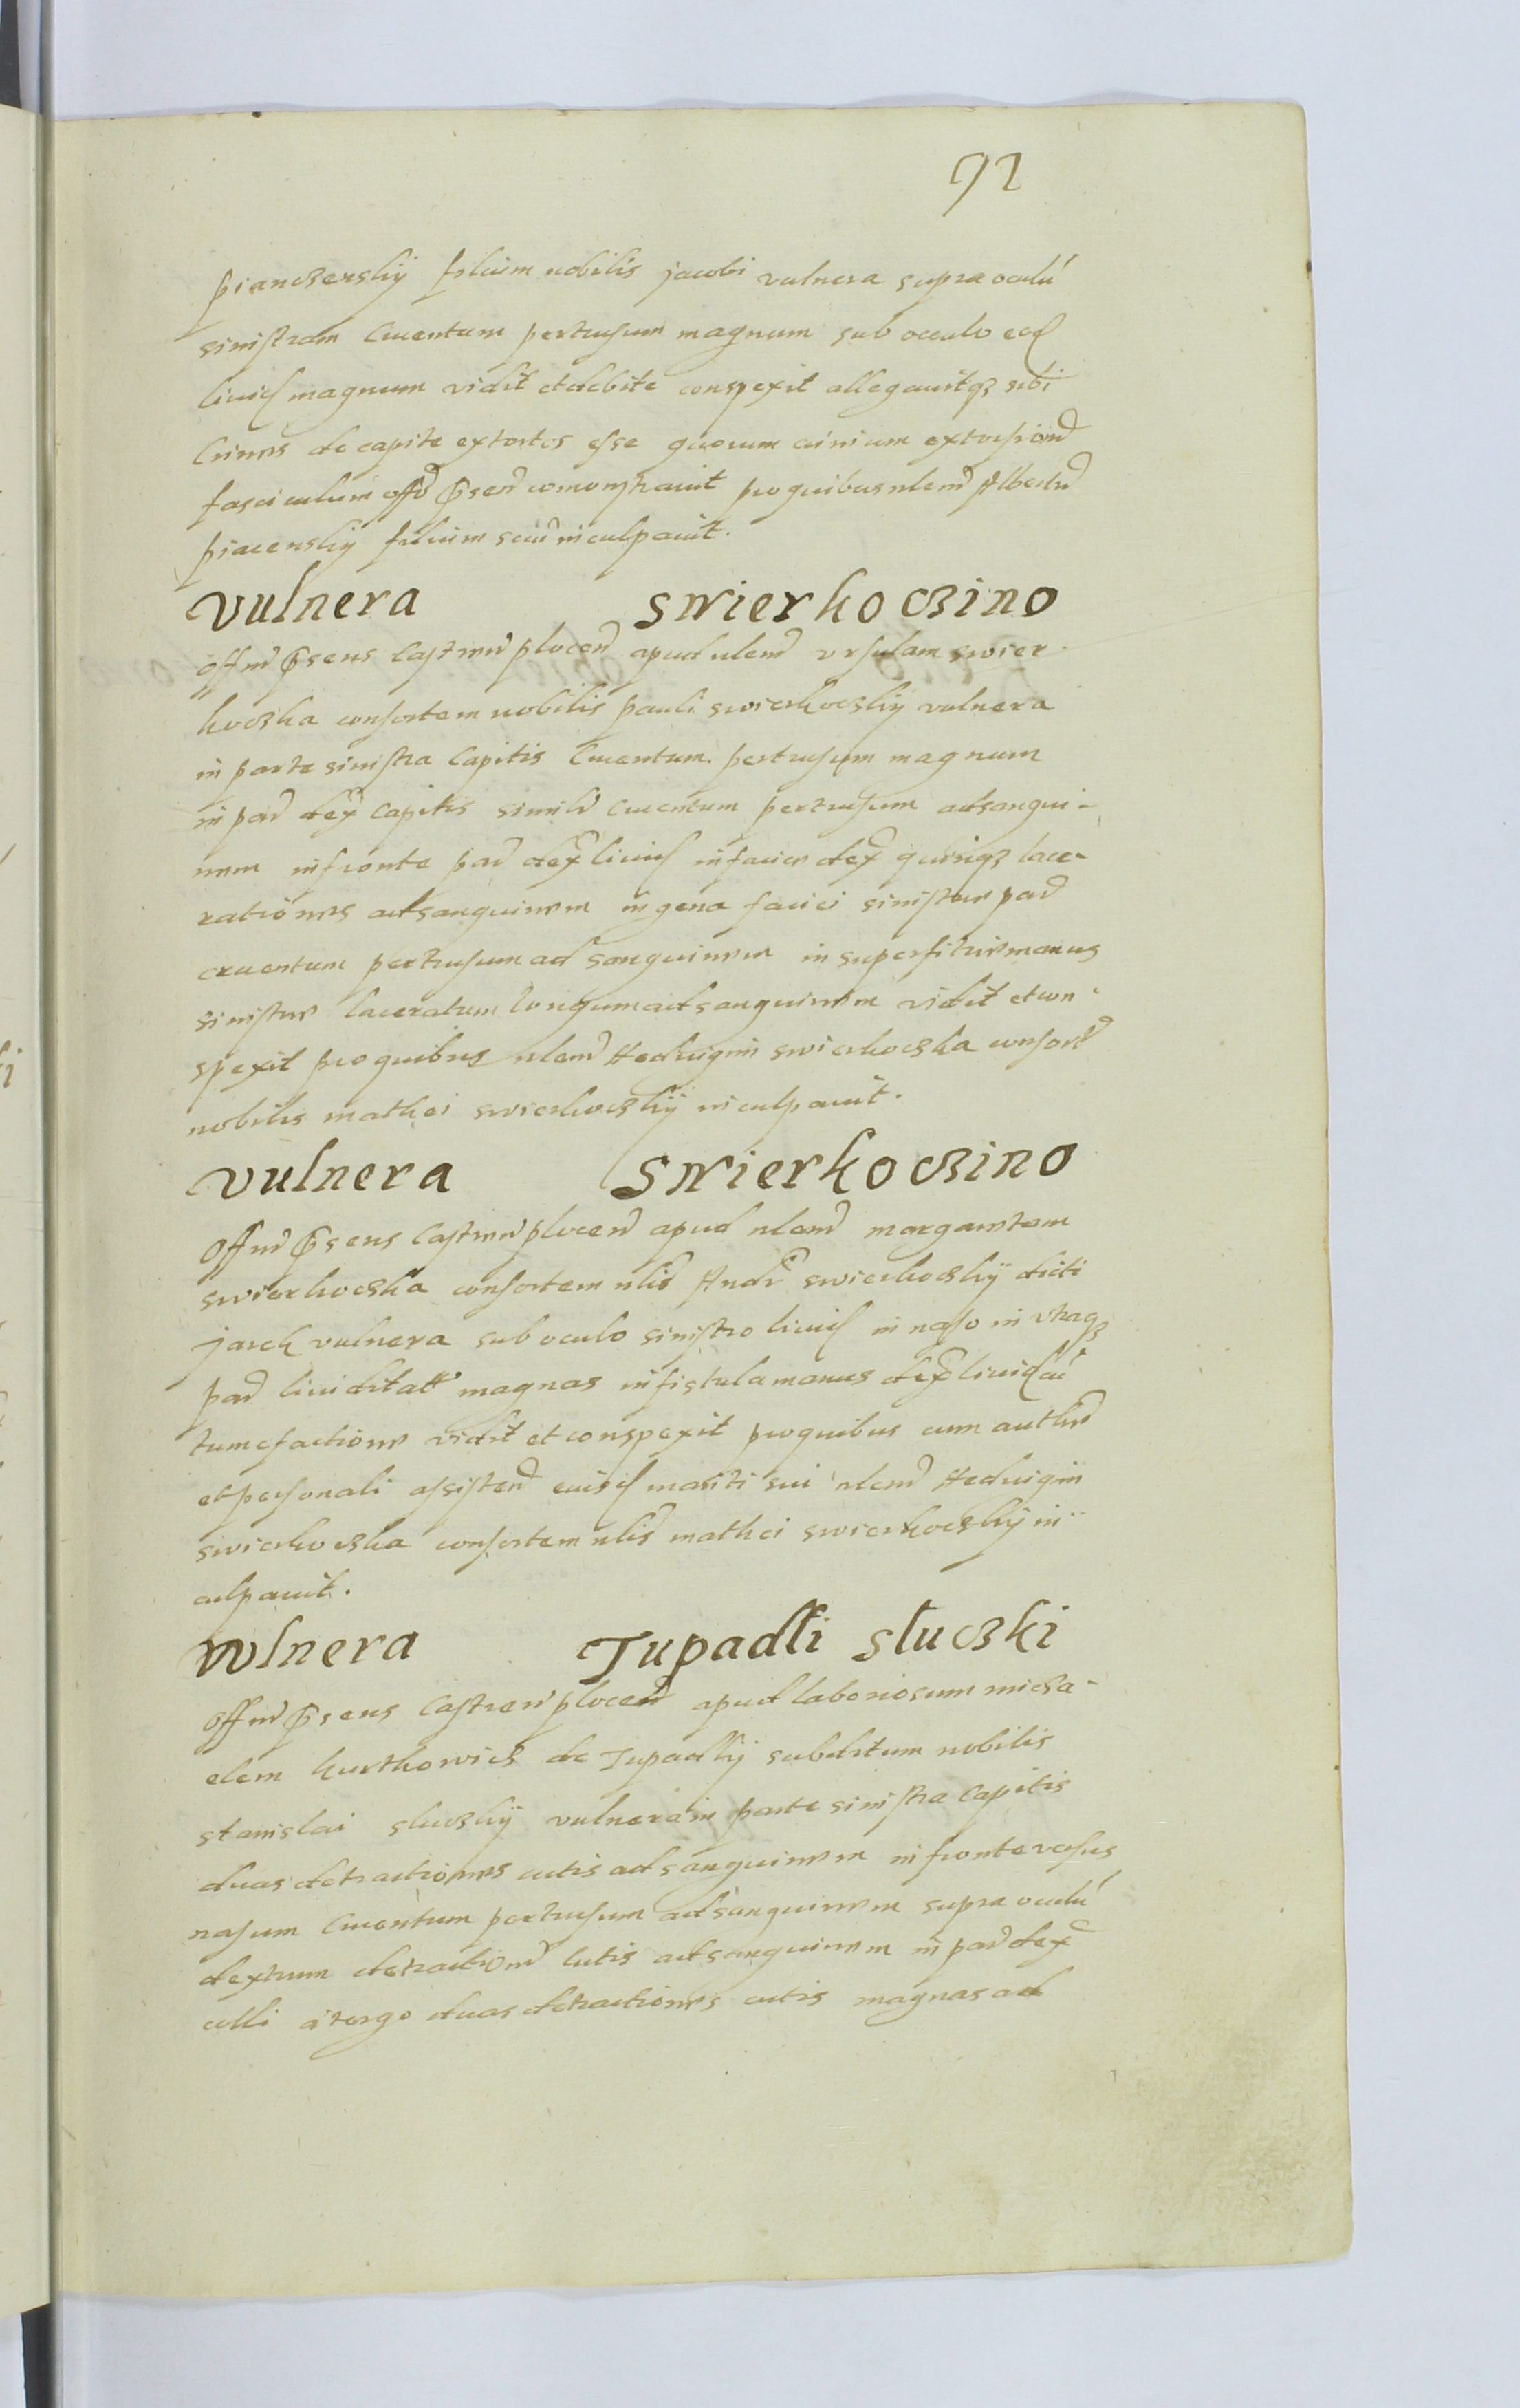 92
pianczerskÿ filium nobilis jacobi vulnera supra oculū
sinistram Cruentum pertusum magnum sub occulo eod
livid magnum vidit et debite conspexit allegavitqz sibi
Crines de capite extortos esse quorum crinium extorsion
fasciculum offō Pñsen comonstravit pro quibus nlem Albertū
piacenskÿ filium suū inculpavit.
vulnera swierkoczino
Offm Pñsens Castren plocen apud nlem vrsulam swier
koczka consortem nobilis pauli swierkoczkÿ vulnera
in parte sinistra Capitis Cruentum pertusum magnum
in par dex Capitis simile Cruentum pertusum ad sangui-
nem in fronte par dex livid in facie dex quinqz lace-
rationes ad sanguinem in gena faciei sinistre par
cruentum pertusum ad sanguinem in superficie manus
sinistre laceratum longum ad sanguinem vidit et con-
spexit pro quibus nlem Hedvigim swierkoczka consort
nobilis mathei swierkoczkÿ inculpavit.
vulnera Swierkoczino
Offm Pñsens Castren plocen apud nlem margaretam
swierkoczka consortem nlis Andr swierkoczkÿ dicti
jarek vulnera sub oculo sinistro livid in naso in vtraqz
par lividitates magnas in fistula manus dex livid cū
tumefactione vidit et conspexit pro quibus cum auth
et personali assisten eiusd mariti sui nlem Hedvigim
swierkoczka consortem nlis mathei swierkoczkÿ in-
culpavit.
vvlnera Jupadli sluczki
Offm Pñsens Castren plocen apud laboriosum micha-
elem kurthowicz de Jupadlÿ subditum nobilis
stanislai sluczkÿ vulnera in parte sinistra Capitis
duas detractiones cutis ad sanguinem in fronte versus
nasum Cruentum pertusum ad sanguinem supra oculū
dextrum detraction Cutis ad sanguinem in par dex
colli a tergo duas detractiones cutis magnas ad